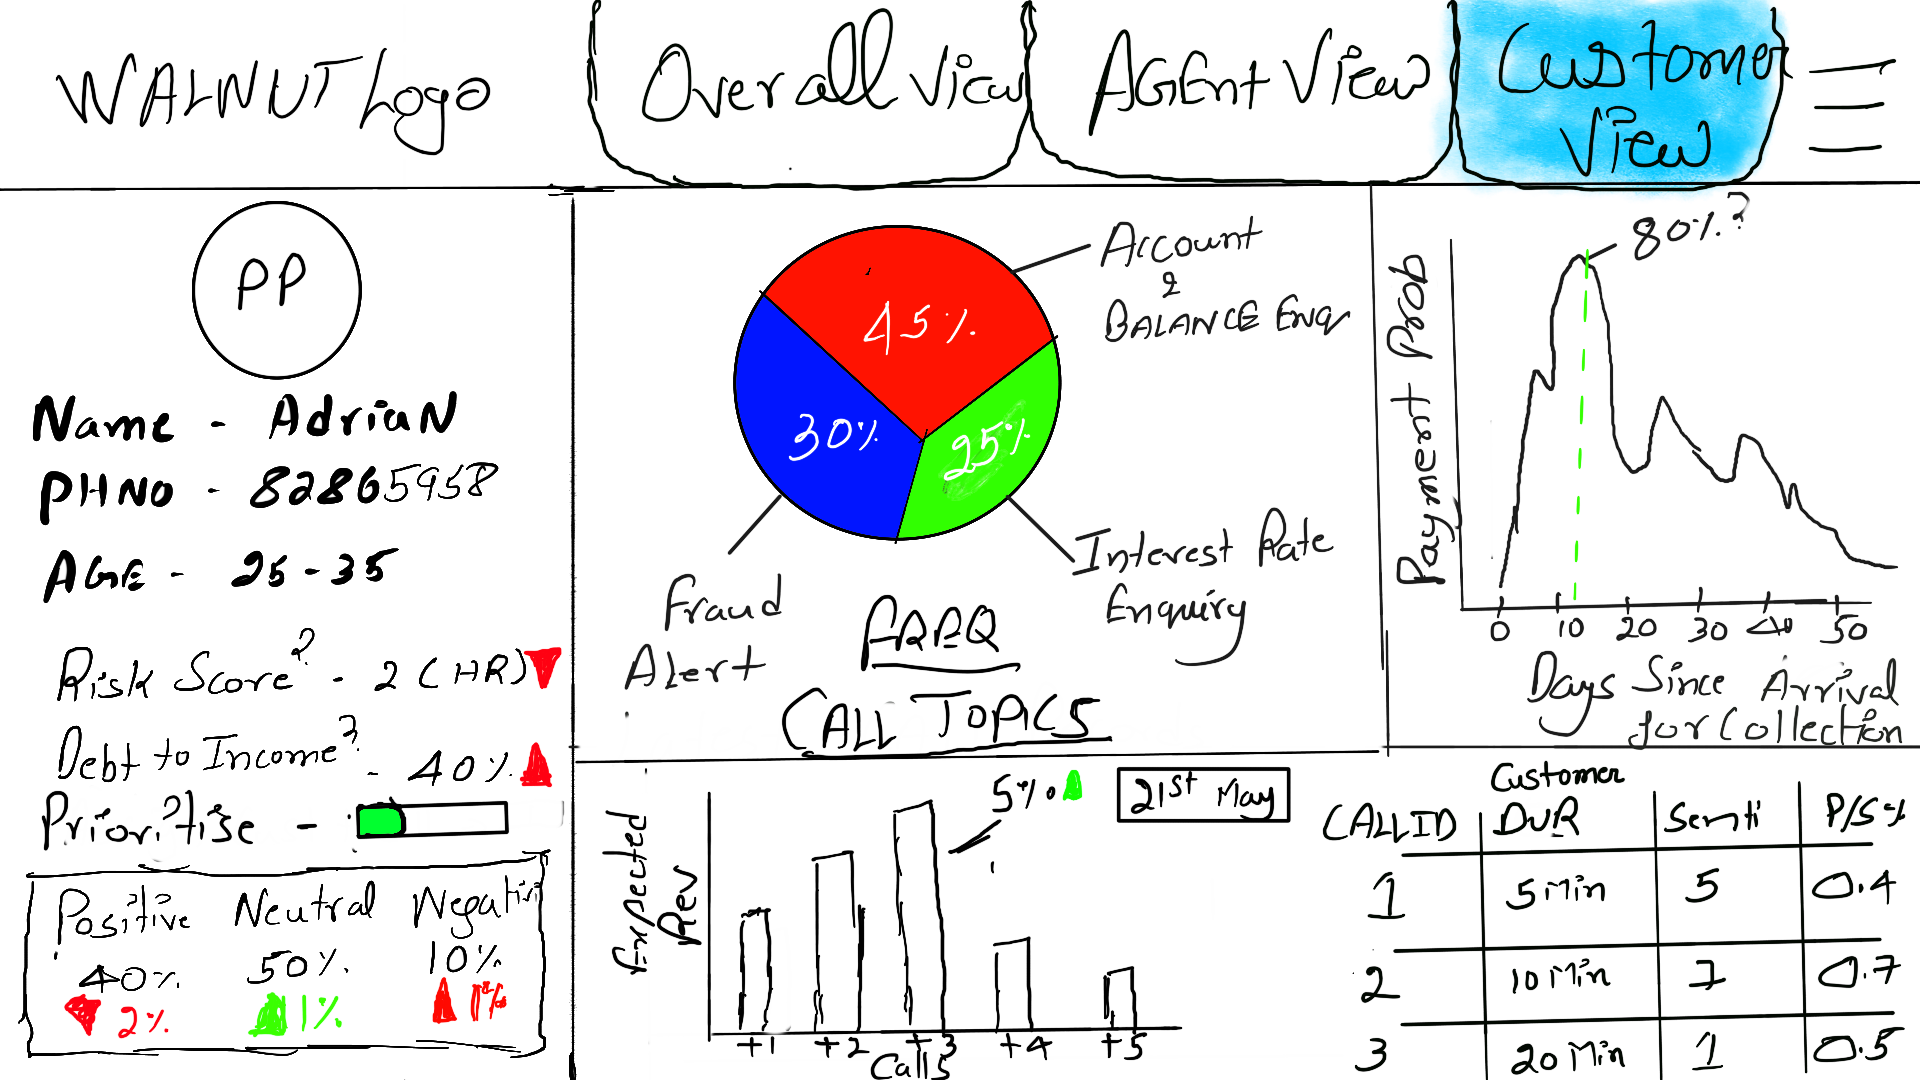 WALNUT Logo
Overall View
AGEnt View
Customer
View
PP
Name - AdriaN
PHNO - 82865958
AGE - 25-35
Risk Score? - 2 (HR)
Debt to Income? - 40%
Prioritise -
Positive Neutral Negative
40% 50% 10%
2% 1% 1%
45%
30%
25%
Account
&
BALANCE Enq
Fraud
Alert
Interest Rate
Enquiry
FREQ
CALL TOPICS
80%?
Payment Prob
0 10 20 30 40 50
Days Since Arrival
for Collection
Expected
Rev
5%
21st May
+1 +2 +3 +4 +5
Calls
Customer
CALLID DUR Senti P/S%
1 5 Min 5 0.4
2 10 Min 7 0.7
3 20 Min 1 0.5